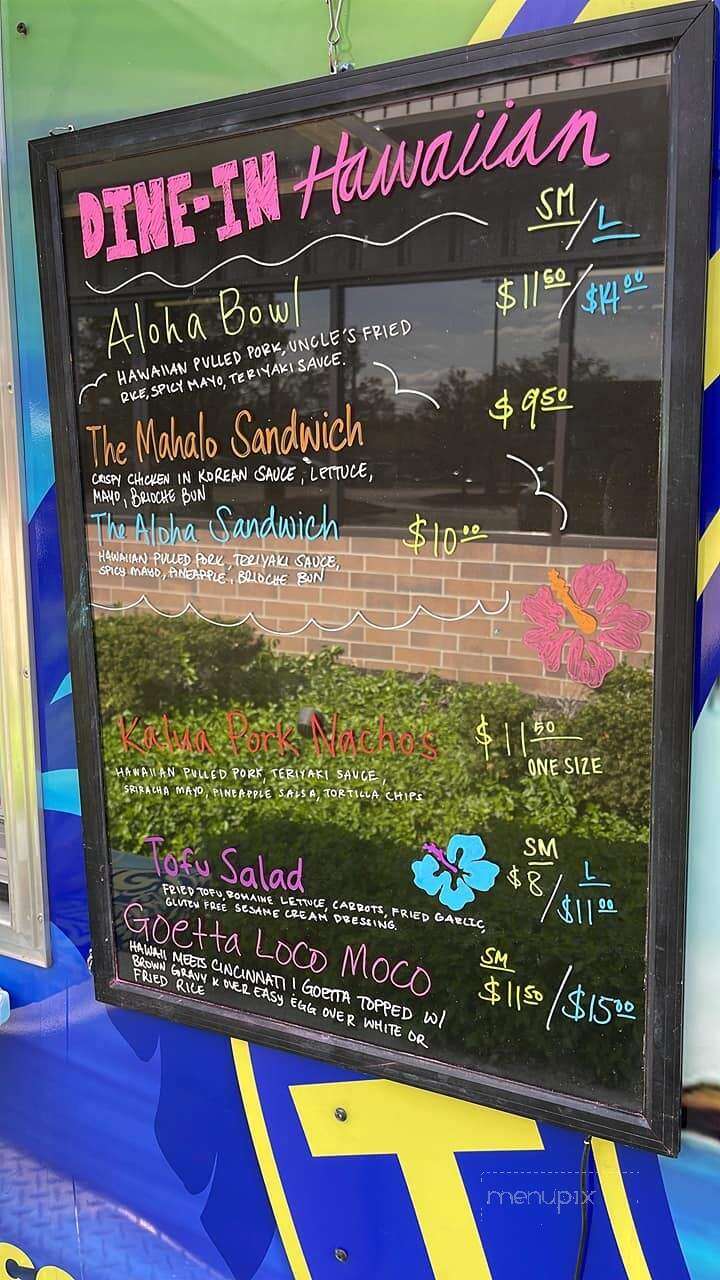 DINE-IN Hawaiian
SM / L
Aloha Bowl $11.50 / $14.00
HAWAIIAN PULLED PORK, UNCLE'S FRIED
RICE, SPICY MAYO, TERIYAKI SAUCE.
The Mahalo Sandwich $9.50
CRISPY CHICKEN IN KOREAN SAUCE, LETTUCE,
MAYO, BRIOCHE BUN
The Aloha Sandwich $10.00
HAWAIIAN PULLED PORK, TERIYAKI SAUCE,
SPICY MAYO, PINEAPPLE, BRIOCHE BUN
Kalua Pork Nachos $11.50
ONE SIZE
HAWAIIAN PULLED PORK, TERIYAKI SAUCE,
SRIRACHA MAYO, PINEAPPLE SALSA, TORTILLA CHIPS
SM / L
Tofu Salad $8 / $11.00
FRIED TOFU, ROMAINE LETTUCE, CARROTS, FRIED GARLIC,
GLUTEN FREE SESAME CREAM DRESSING.
SM
GOETTA LOCO MOCO $11.50 / $15.00
HAWAII MEETS CINCINNATI! GOETTA TOPPED W/
BROWN GRAVY & OVER EASY EGG OVER WHITE OR
FRIED RICE
T
menupix